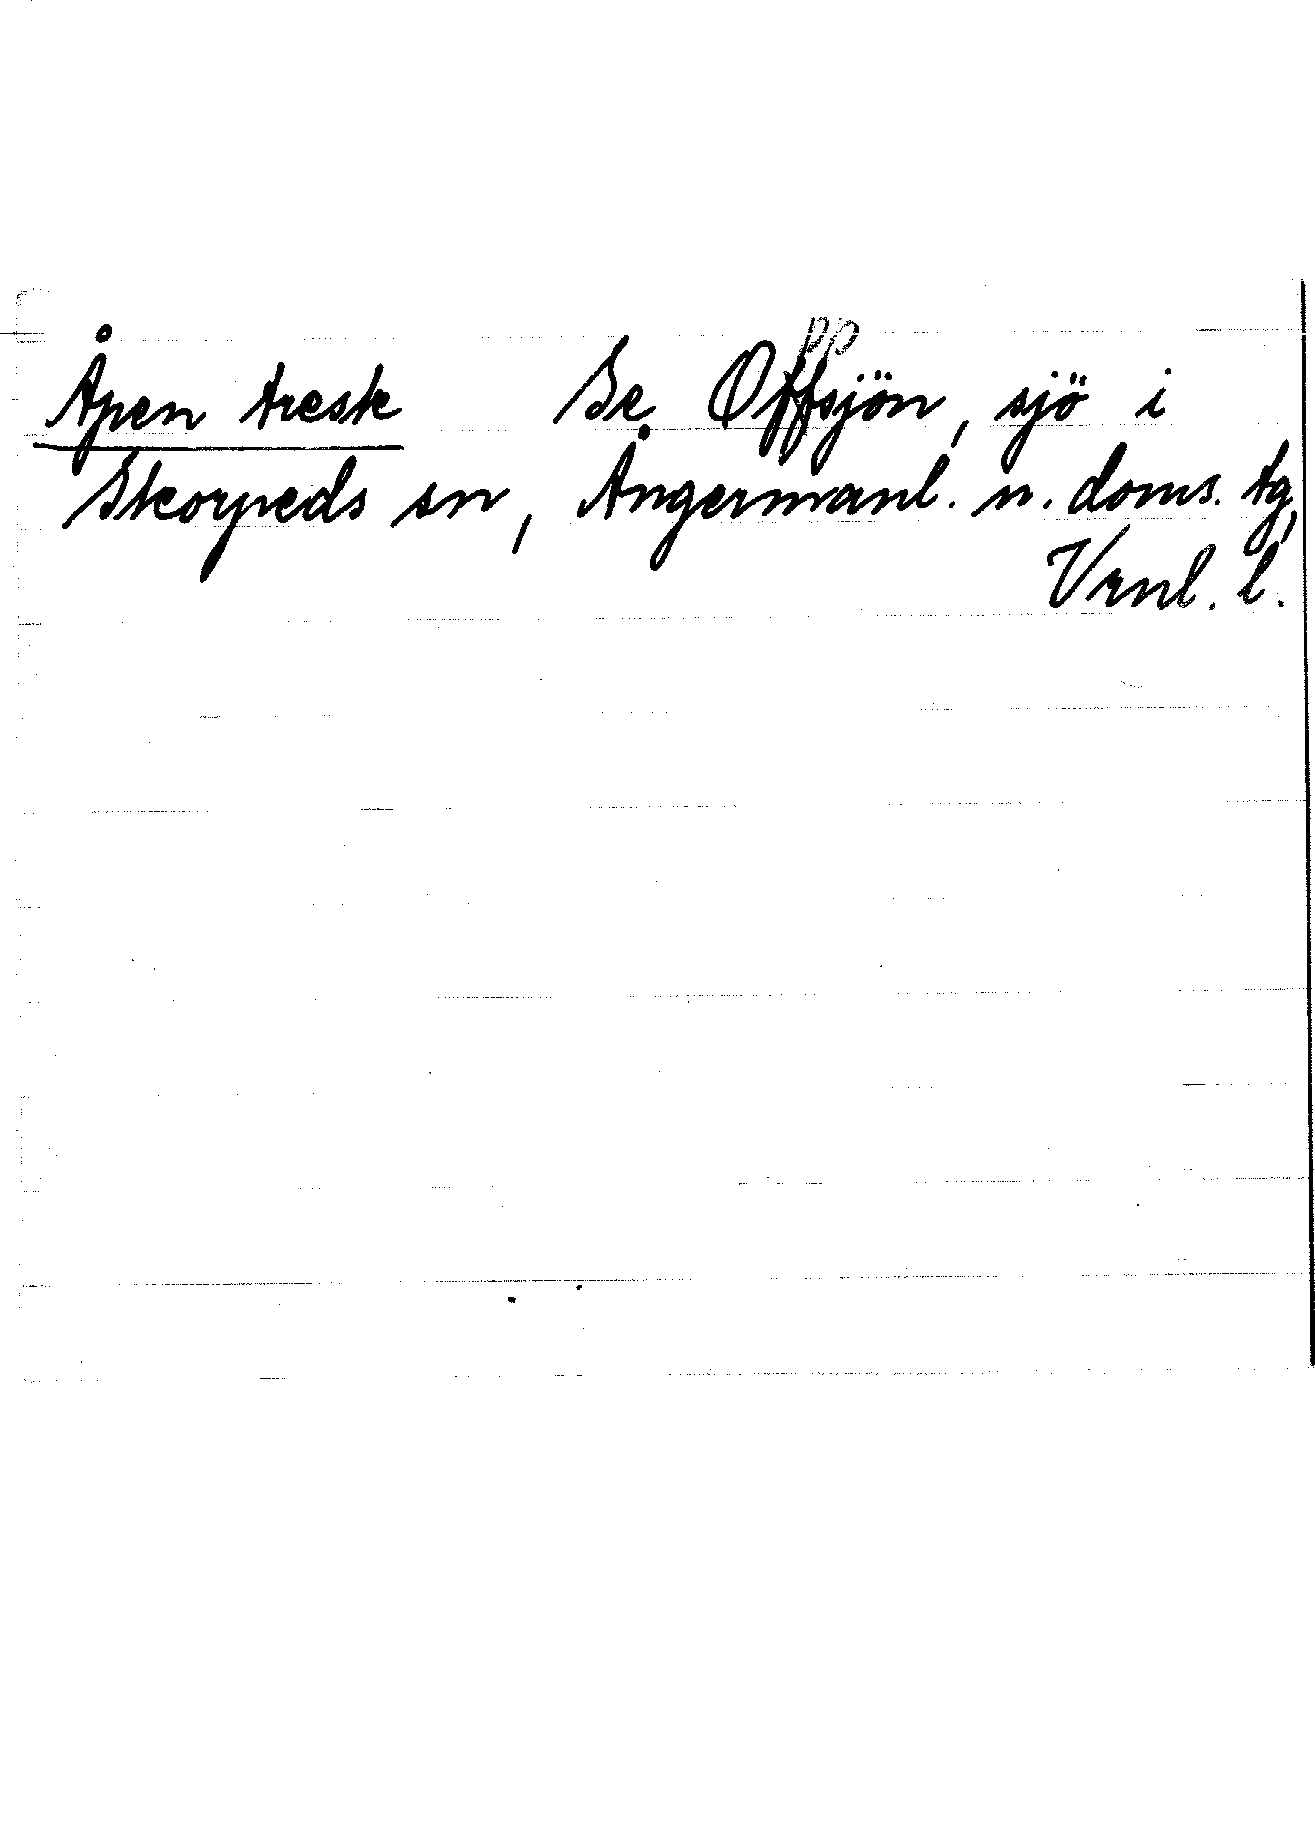 Åpen tresk Se Offsjön, sjö i
pp
Skorpeds sn, Ångermanl. n. doms. tg,
Vrnl. l.